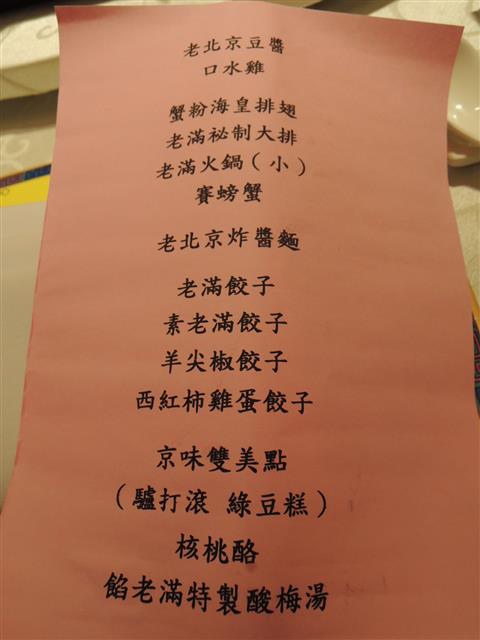 老北京豆醬
口水雞
蟹粉海皇排翅
老滿祕制大排
老滿火鍋(小)
賽螃蟹
老北京炸醬麵
老滿餃子
素老滿餃子
羊尖椒餃子
西紅柿雞蛋餃子
京味雙美點
(驢打滾 綠豆糕)
核桃酪
餡老滿特製酸梅湯